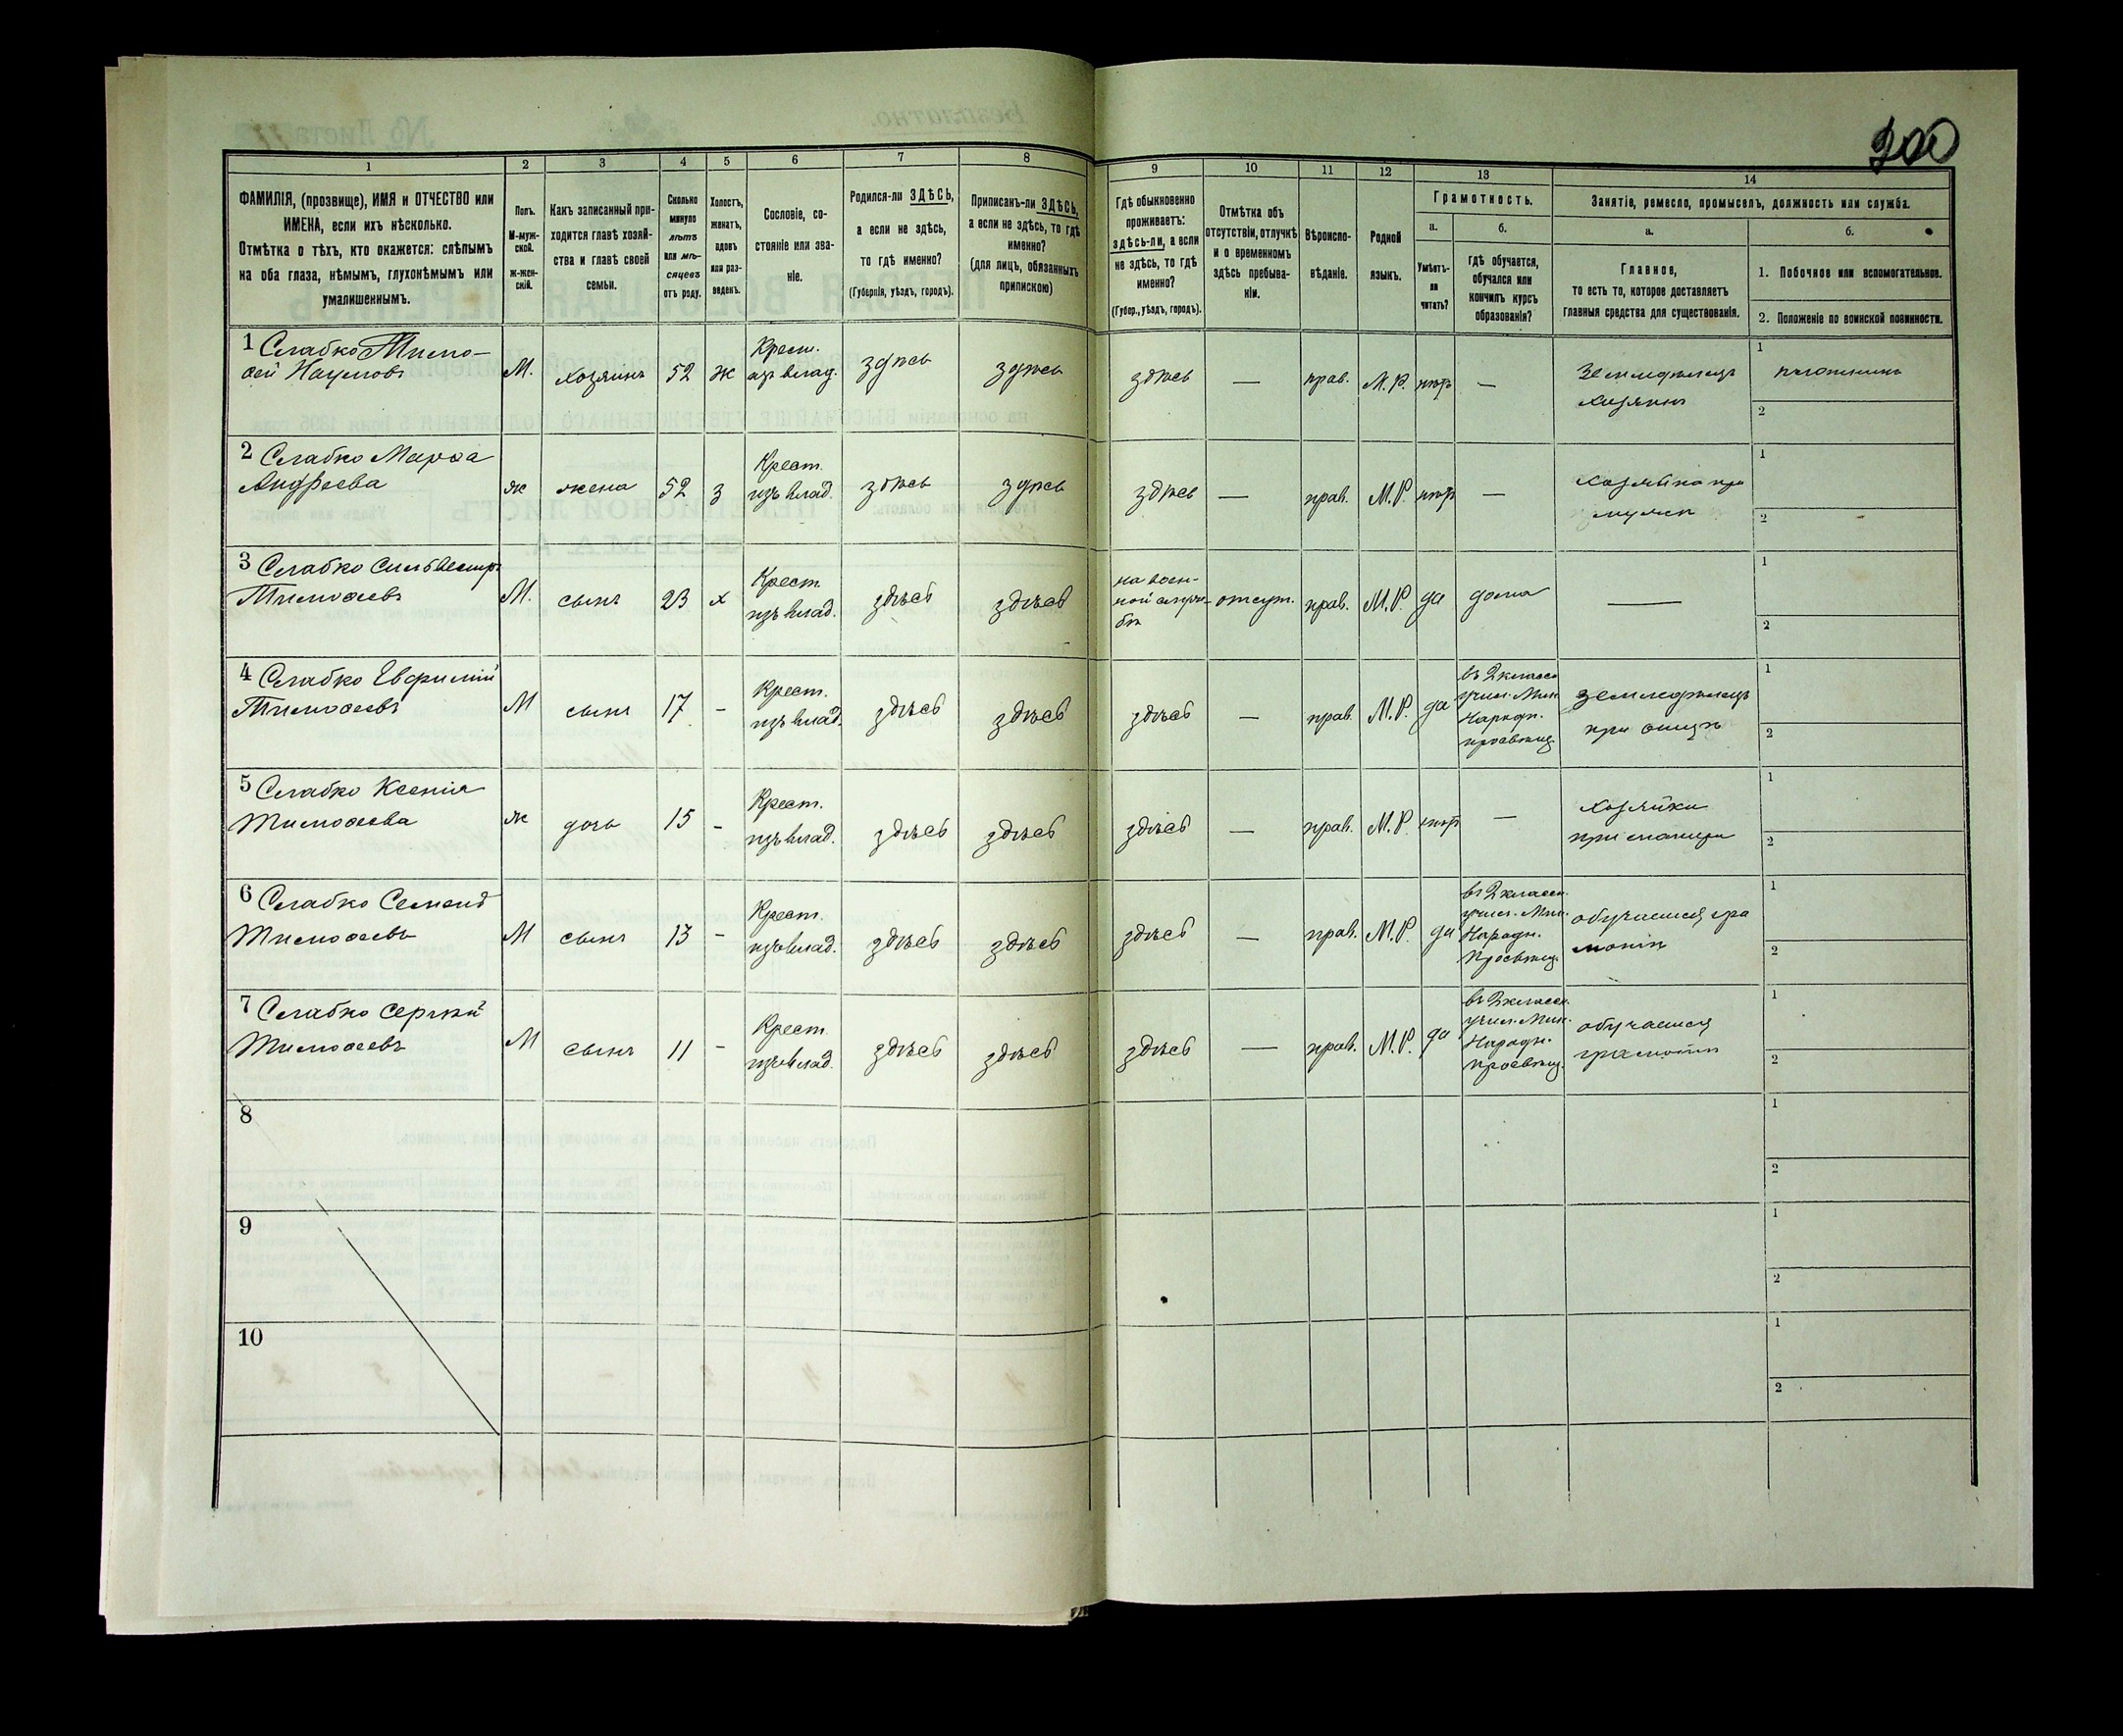 200
1 2 3 4 5 6 7 8 9 10 11 12 13 14
ФАМИЛІЯ, (прозвище), ИМЯ и ОТЧЕСТВО или
ИМЕНА, если ихъ нѣсколько.
Отмѣтка о тѣхъ, кто окажется: слѣпымъ
на оба глаза, нѣмымъ, глухонѣмымъ или
умалишеннымъ.
Полъ.
М-муж-
ской.
ж-жен-
скій.
Какъ записанный при-
ходится главѣ хозяй-
ства и главѣ своей
семьи.
Сколько
минуло
лѣтъ
или мѣ-
сяцевъ
отъ роду.
Холостъ,
женатъ,
вдовъ
или раз-
веденъ.
Сословіе, со-
стояніе или зва-
ніе.
Родился-ли ЗДѢСЬ,
а если не здѣсь,
то гдѣ именно?
(Губернія, уѣздъ, городъ).
Приписанъ-ли ЗДѢСЬ,
а если не здѣсь, то гдѣ
именно?
(для лицъ, обязанныхъ
припискою)
Гдѣ обыкновенно
проживаетъ:
здѣсь-ли, а если
не здѣсь, то гдѣ
именно?
(Губер., уѣздъ, городъ).
Отмѣтка объ
отсутствіи, отлучкѣ
и о временномъ
здѣсь пребыва-
ніи.
Вѣроиспо-
вѣданіе.
Родной
языкъ.
Грамотность.
а.
Умѣетъ-
ли
читать?
б.
гдѣ обучается,
обучался или
кончилъ курсъ
образованія?
Занятіе, ремесло, промыселъ, должность или служба.
а.
Главное,
то есть то, которое доставляетъ
главныя средства для существованія.
б.
1. Побочное или вспомогательное.
2. Положеніе по воинской повинности.
1 Слабко Тимо-
фей Наумовъ
М. хозяинъ 52 Ж
Крест.
изъ влад.
здѣсь здѣсь здѣсь — прав. М.Р. нѣтъ —
Земледѣлецъ
хозяинъ
1 плотникъ
2
2 Слабко Марфа
Андреева
ж жена 52 З
Крест.
изъ влад.
здѣсь здѣсь здѣсь — прав. М.Р. нѣтъ —
Хозяйка при
мужѣ
1
2
3 Слабко Сильвестръ
Тимофеевъ
М. сынъ 23 х
Крест.
изъ влад.
здѣсь здѣсь
на воен-
ной служ-
бѣ
отсут. прав. М.Р. да дома —
1
2
4 Слабко Евфимій
Тимофеевъ
М сынъ 17 -
Крест.
изъ влад.
здѣсь здѣсь здѣсь — прав. М.Р. да
въ 2 классн
учил. Мин.
Народн.
просвѣщ.
земледѣлецъ
при отцѣ
1
2
5 Слабко Ксенія
Тимофеева
ж дочь 15 -
Крест.
изъ влад.
здѣсь здѣсь здѣсь — прав. М.Р. нѣтъ —
Хозяйки
при матери
1
2
6 Слабко Семенъ
Тимофеевъ
М сынъ 13 -
Крест.
изъ влад.
здѣсь здѣсь здѣсь — прав. М.Р. да
въ 2 классн.
учил. Мин.
Народн.
Просвѣщ.
обучается гра
мотѣ
1
2
7 Слабко Сергѣй
Тимофеевъ
М сынъ 11 -
Крест.
изъ влад.
здѣсь здѣсь здѣсь — прав. М.Р. да
въ 2 классн.
учил. Мин.
Народн.
просвѣщ.
обучается
грамотѣ
1
2
8
1
2
9
1
2
10
1
2